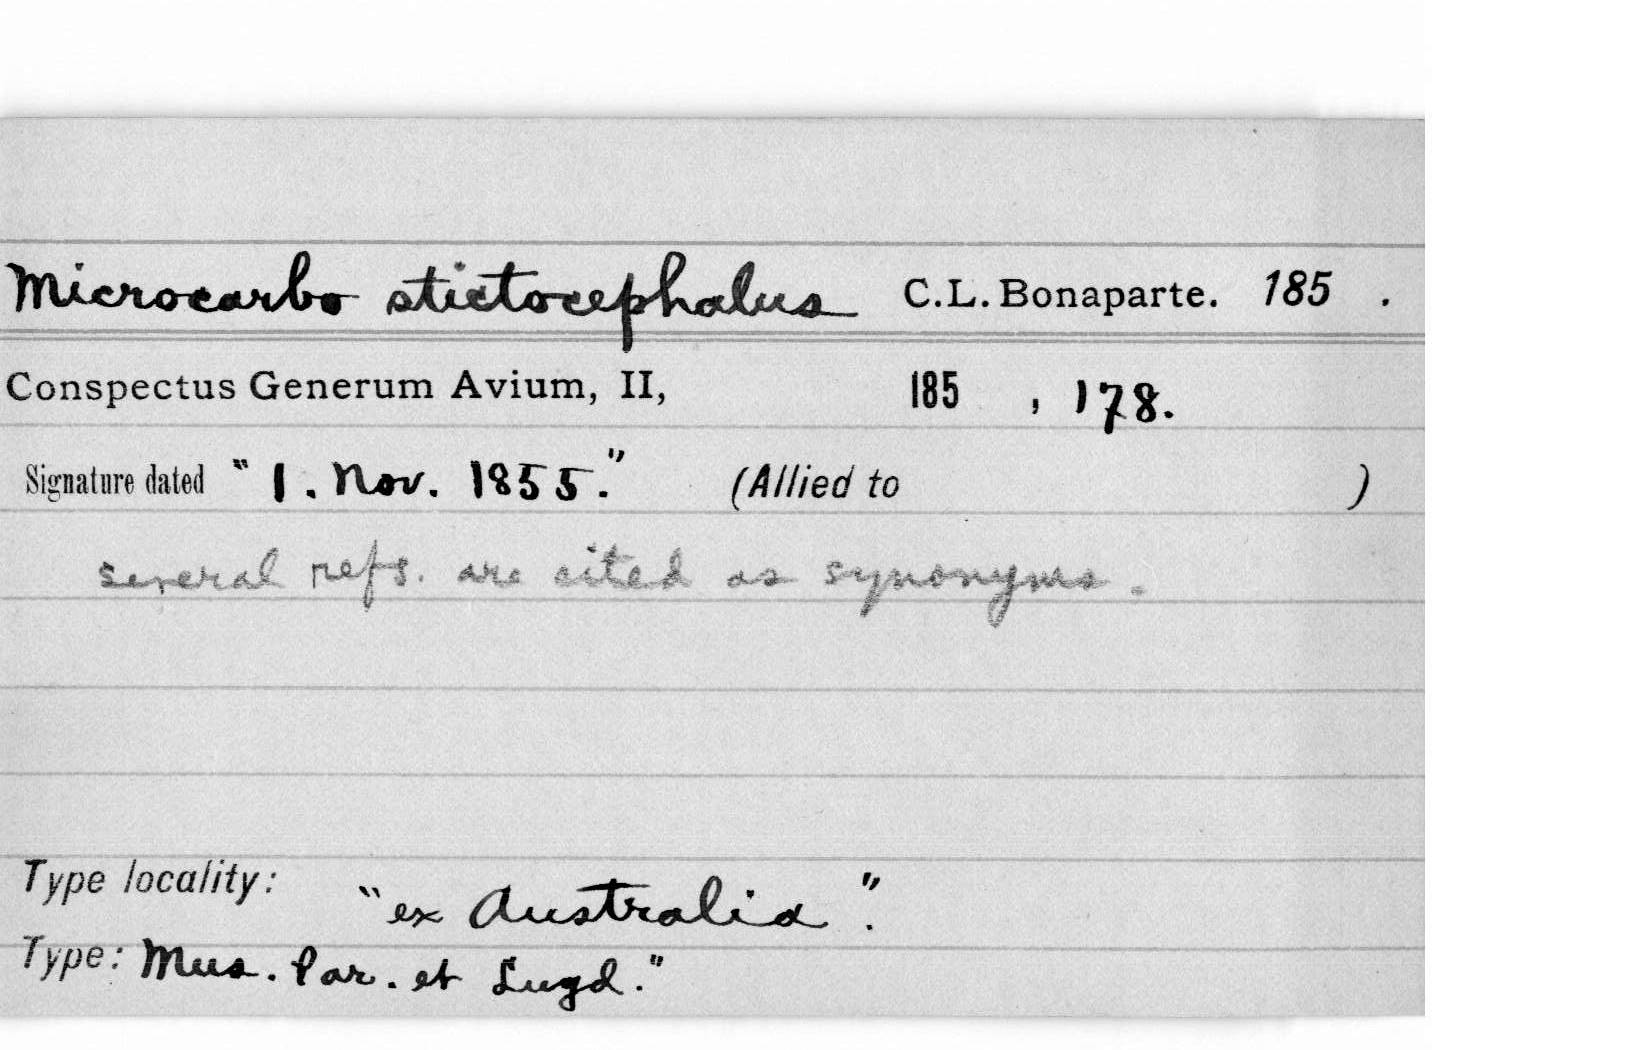 Microcarbo stictocephalus C.L. Bonaparte. 185 .
Conspectus Generum Avium, II, 185 , 178.
Signature dated "1. Nov. 1855." (Allied to )
several refs. are cited as synonyms.
Type locality: "ex Australia".
Type: Mus. Par. et Lugd."